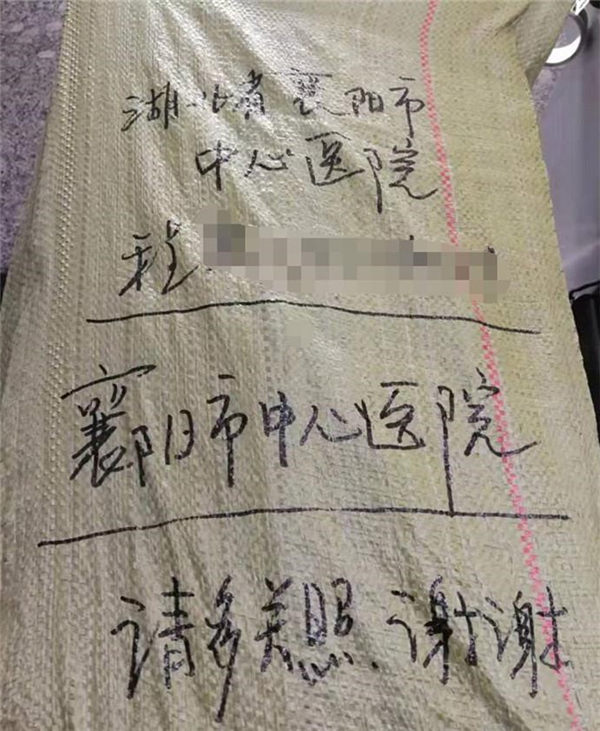 湖北省襄阳市
中心医院
程
襄阳市中心医院
请多关照、谢谢